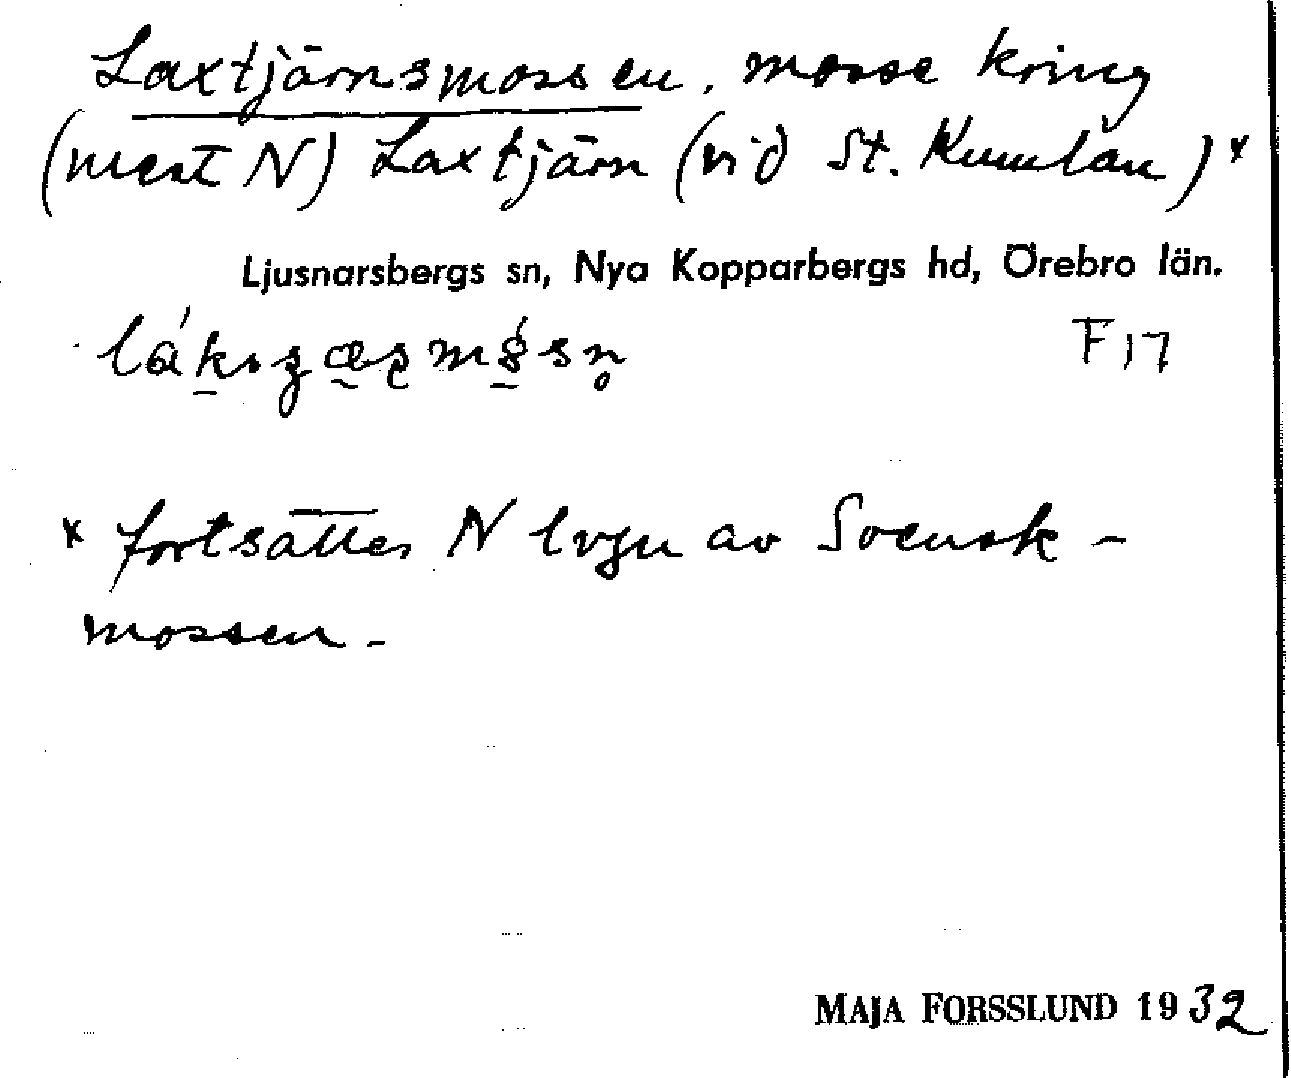 Laxtjärnsmossen, mosse kring
(mest N) Laxtjärn (vid St. Kumlan) x
Ljusnarsbergs sn, Nya Kopparbergs hd, Örebro län.
F17
x fortsättes N av Svensk-
mossen.
MAJA FORSSLUND 1932